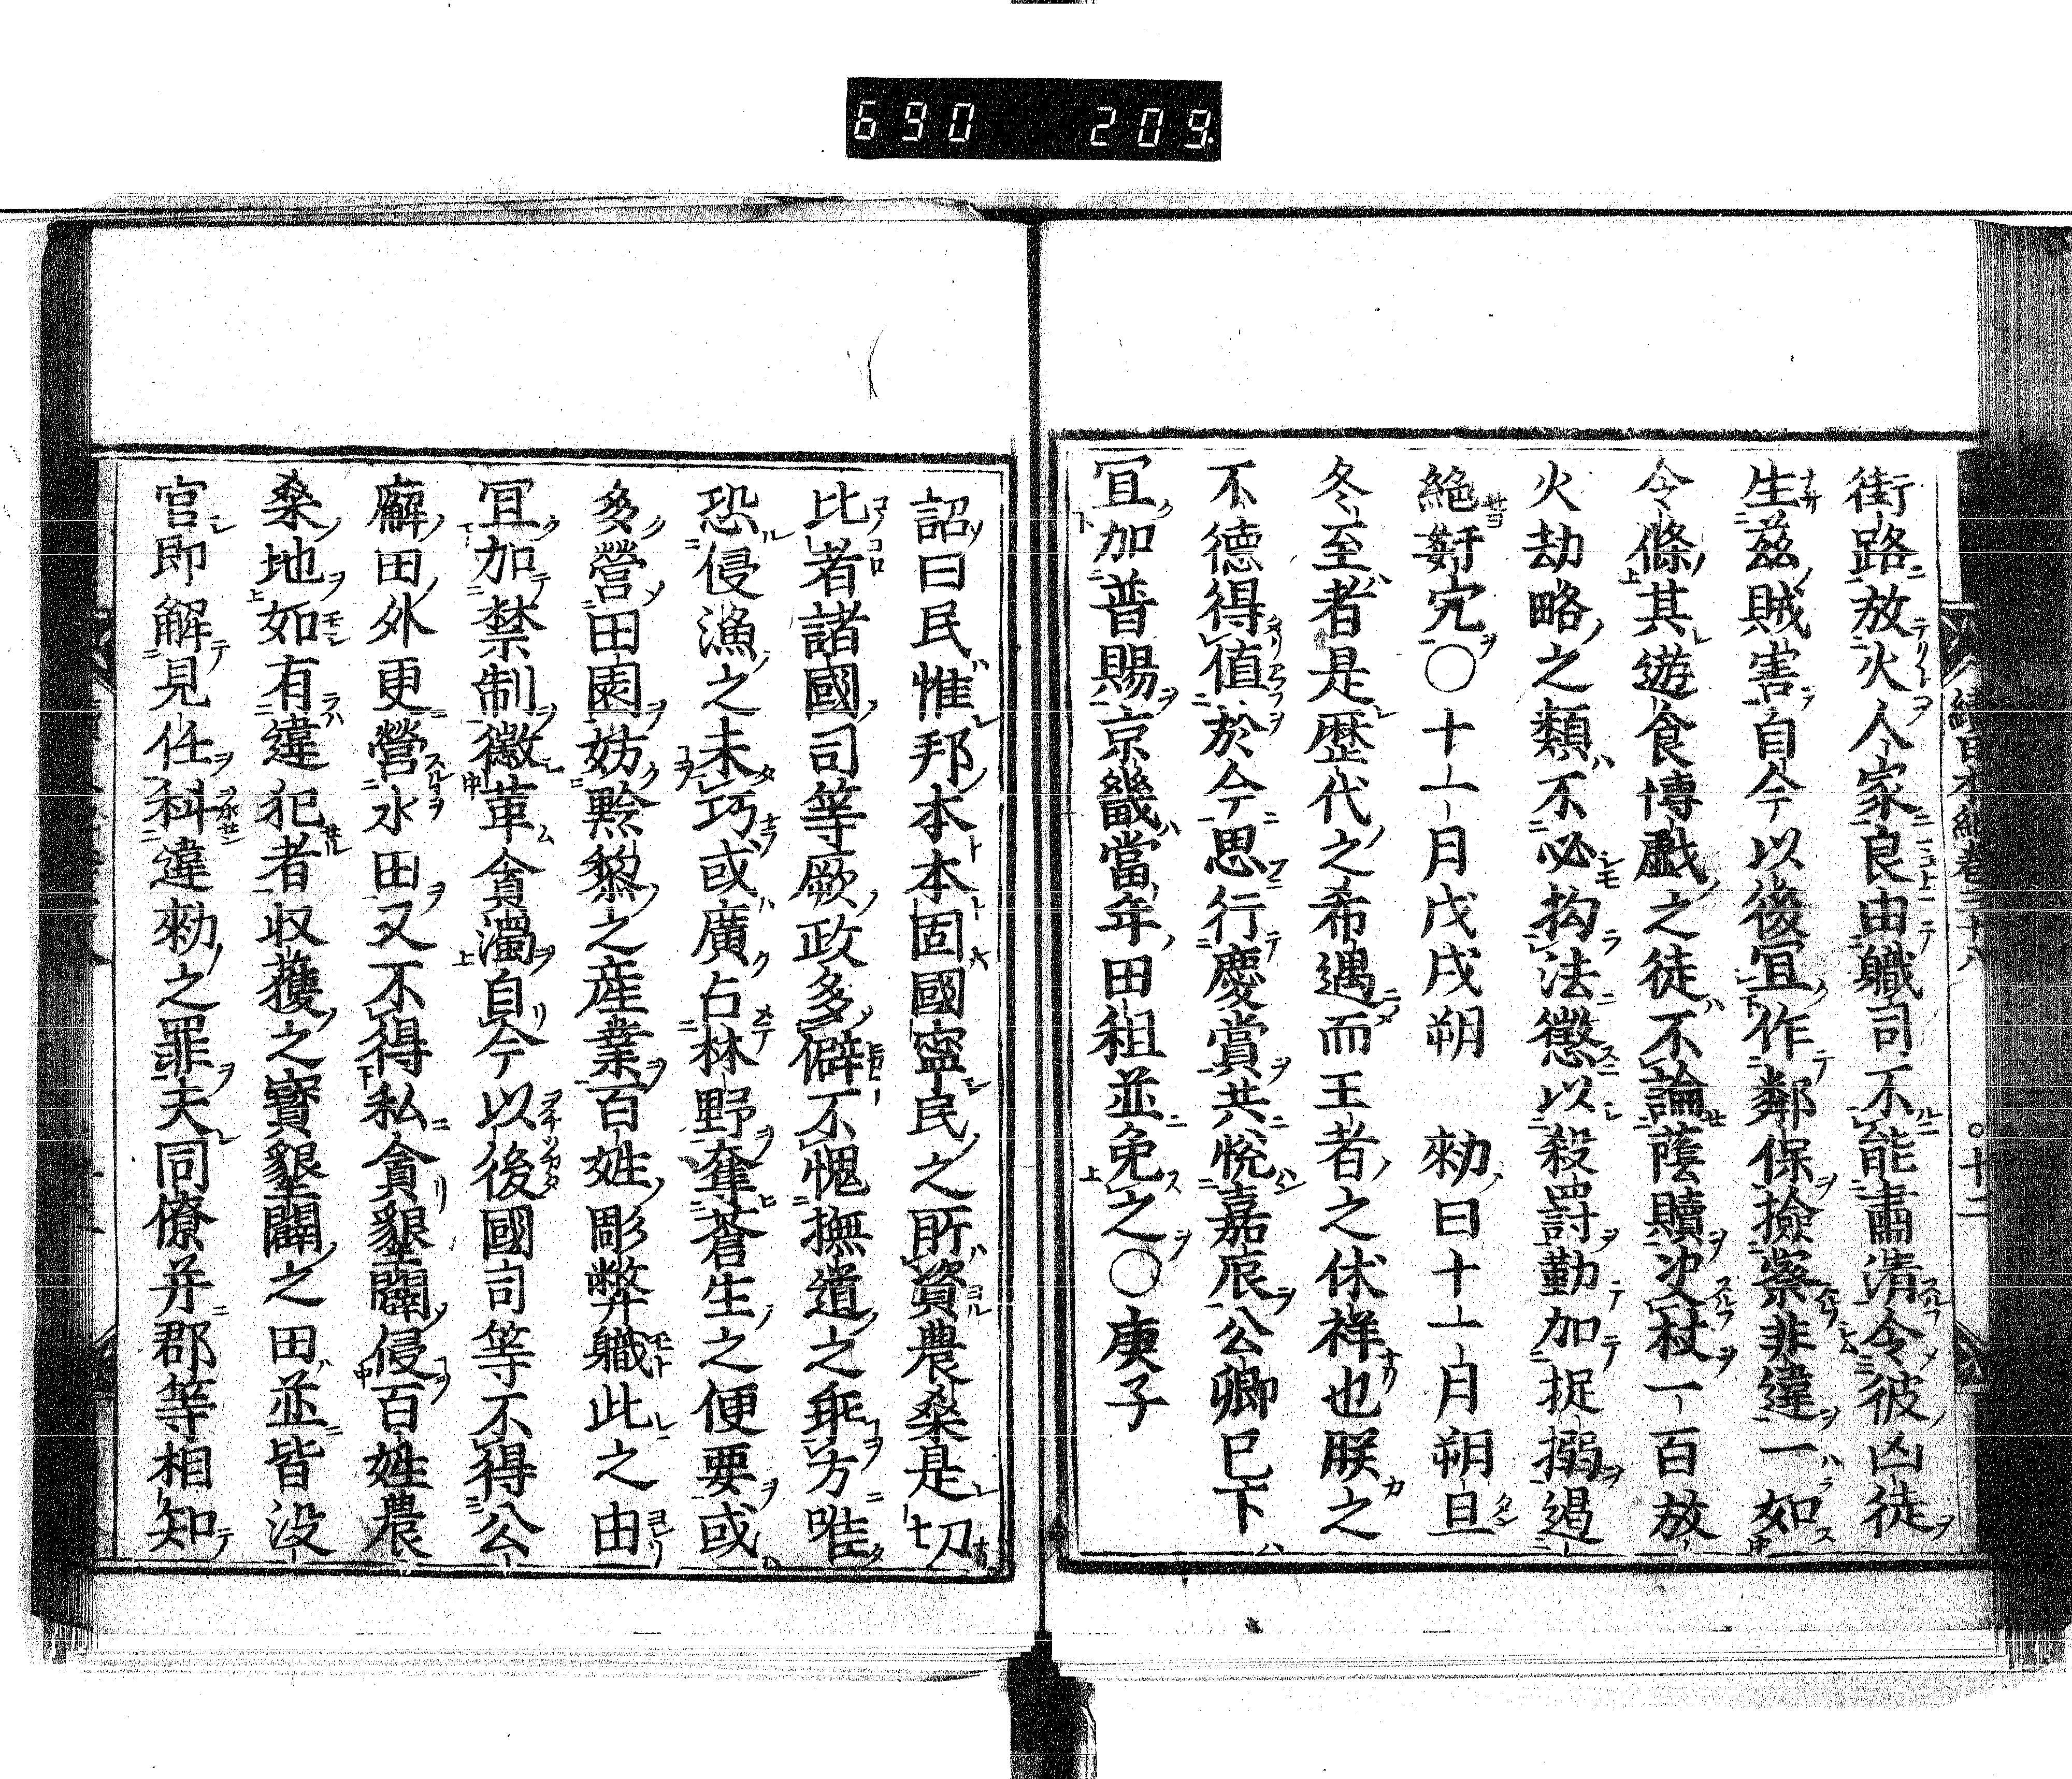 690 209
街路放火人家良由職司不能肅清令彼凶徒
生茲賊害自今以後冝作鄰保撿察非違一如
令條其遊食博戲之徒不論蔭贖决杖一百放
火劫略之類不必拘法懲以殺罸勤加捉搦遏
絶姧宄〇十一月戊戌朔　勑曰十一月朔旦
冬至者是歴代之希遇而王者之休祥也朕之
不德得值於今思行慶賞共悅嘉辰公卿巳下
冝加普賜京畿當年田租並免之〇庚子
詔曰民惟邦本本固國寧民之所資農桒是切
比者諸國司等厥政多僻不愧撫道之乖方唯
恐侵漁之未巧或廣占林野奪蒼生之便要或
多營田園妨黔黎之産業百姓彫弊職此之由
冝加禁制徵革貪濁自今以後國司等不得公
廨田外更營水田又不得私貪墾闢侵百姓農
桒地如有違犯者収獲之實墾闢之田並皆没
官即解見任科違勑之罪夫同僚并郡等相知
續日本紀卷三十八
十二